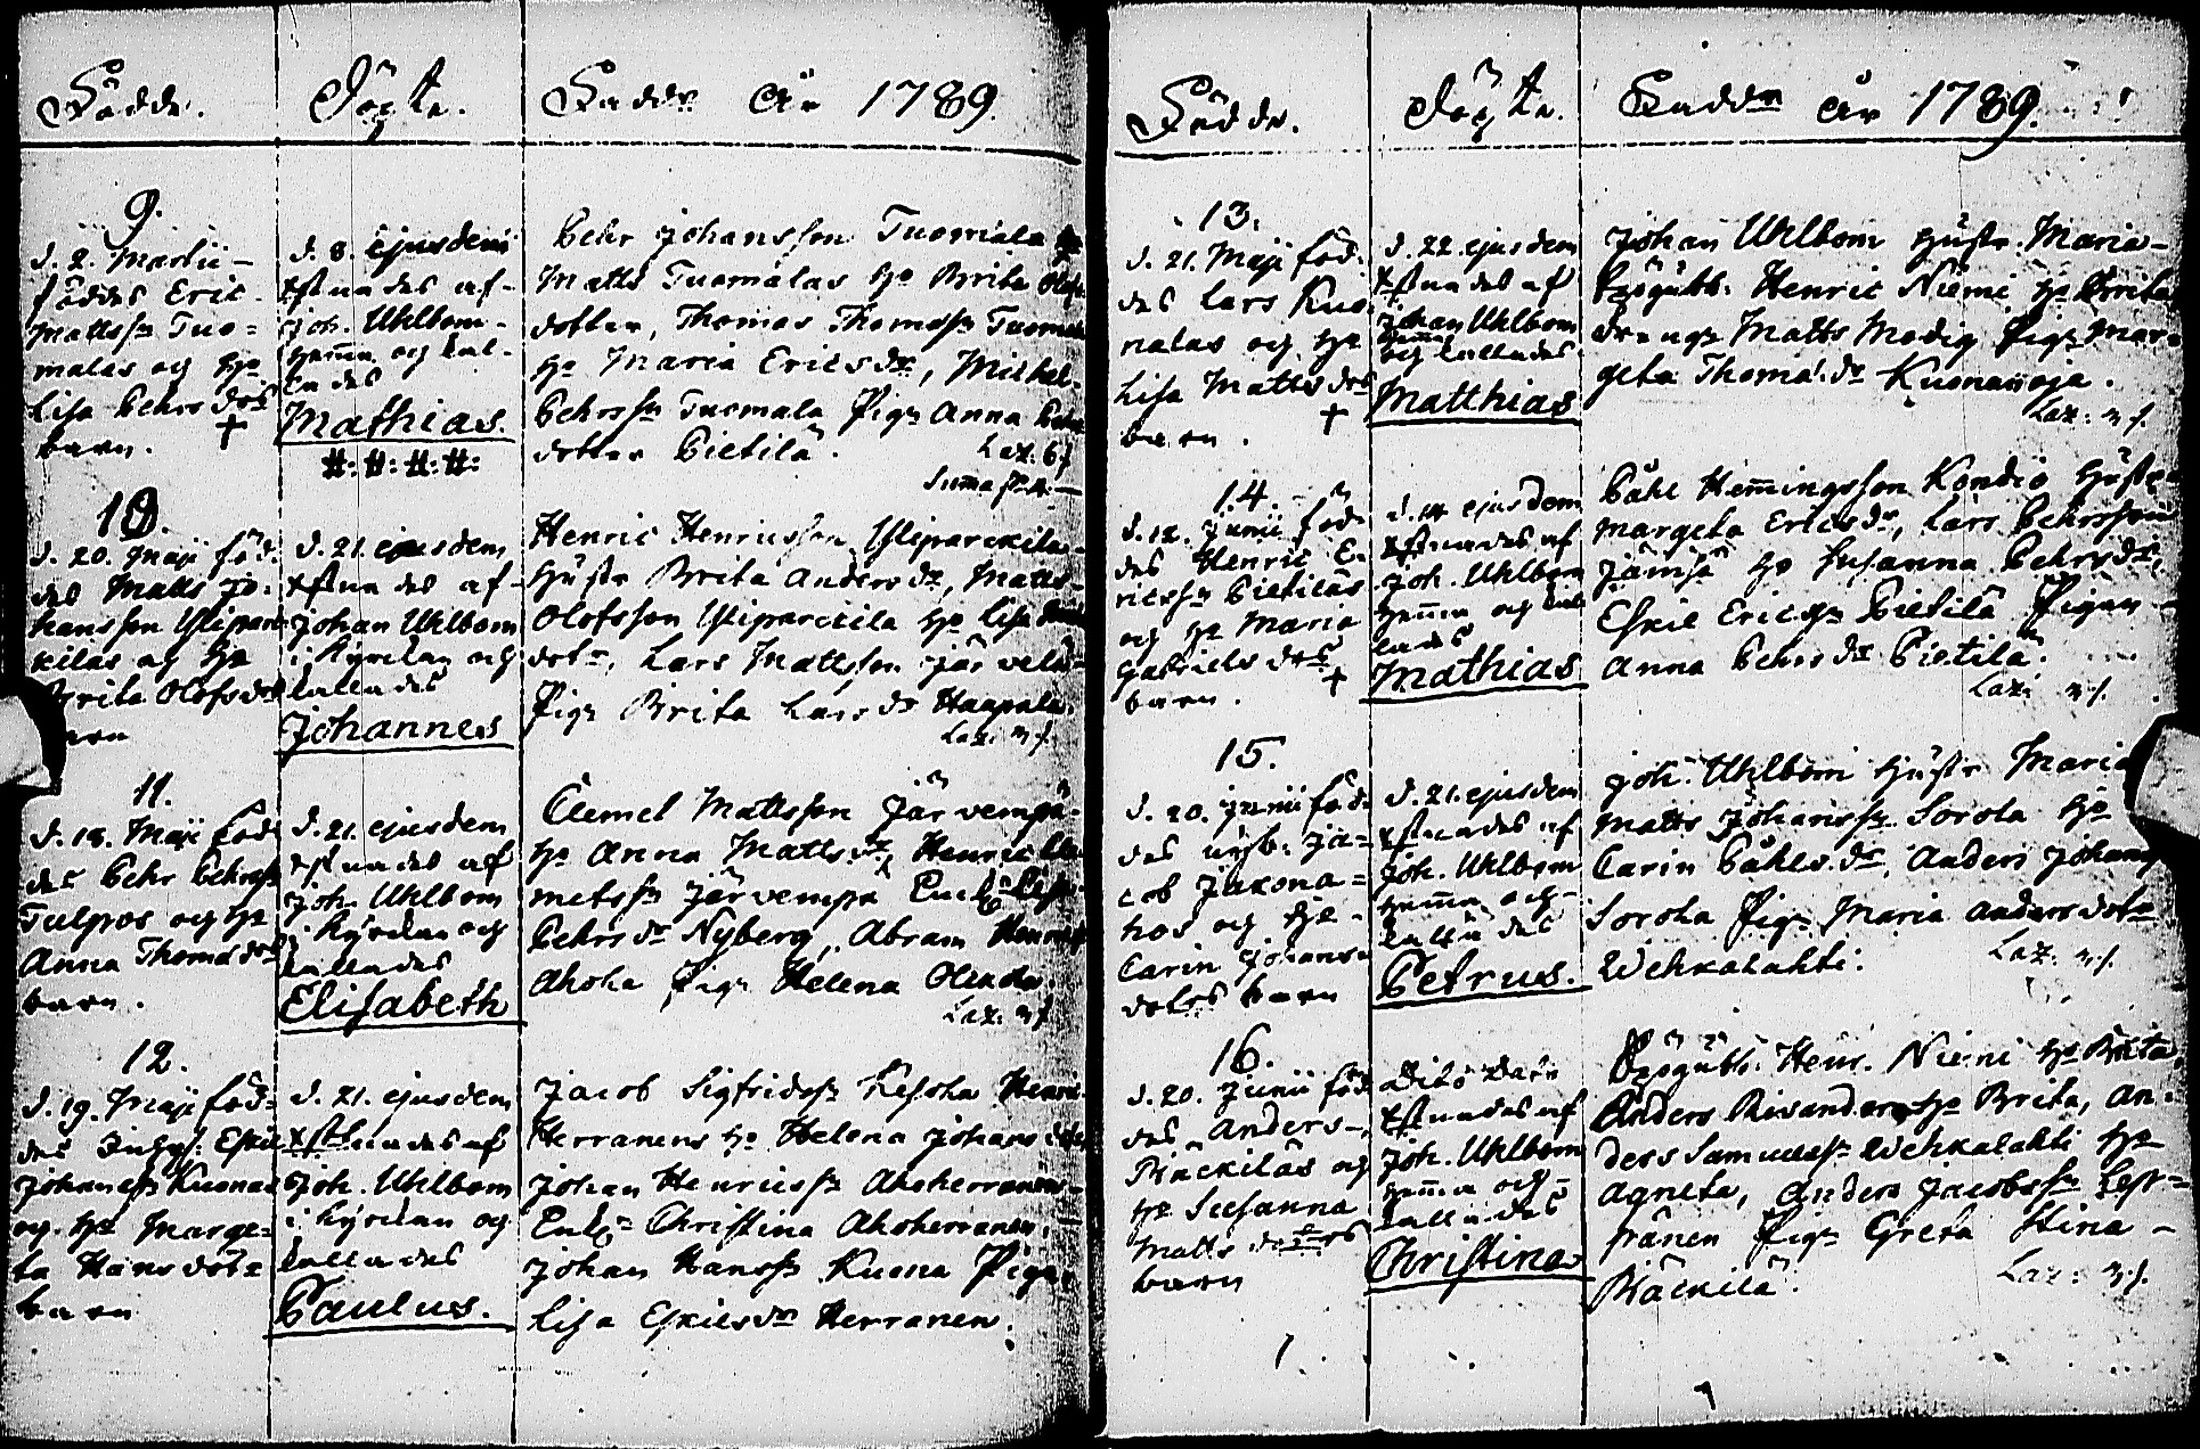 Födde.
Döpte.
Faddr År 1789.
9.
d. 2. Martii
föddes Eric
Mattss: Tuo=
malas og Ho
Lisa Pehrs dos
barn. †
d. 8. ejusdem
Xstnades af
Joh. Uhlbom
hema og kal-
lades
Mathias.
#:#:#:#:
Pehr Johansson Tuomala
Matts Tuomalas Ho Brita Olofs
dotter, Thomas Thomass: Tuomala
Ho Maria Ericsdr, Michel
Pehrss: Tuomala Pig: Anna
dotter Pietilä. Laz: 6 f
Suma
10.
d. 20. Maji föd-
des Matts Jo-
hansson Ylipare
kilas og Ho
Brita Olofsdos
barn
d. 21. ejusdem
Xstnades af
Johan Uhlbom
i Kyrckan og
kallades
Johannes
Henric Henricsson Ylipareckila
Hustr Brita Andersdr, Matts
Olofsson Ylipareckila Ho Lisa
dotr, Lars Mattsson Järvelä
Pig: Brita Larsdr Haapala.
Laz: 3 f.
11.
d. 18. Maji föd-
des Pehr Pehrss
Tulppos og Ho
Anna Thomasdos
barn.
d. 21. ejusdem
Xstnades af
Joh. Uhlbom
i Kyrckan og
kallades
Elisabeth
Clemet Mattsson Järvempä
Ho Anna Mattsdr, Henric Cle
metss: Järvempä Enck: Lisa
Pehrsdr Nyberg, Abram
Ahola Pig: Helena
Laz: 3 f
12.
d. 19. Maji föd-
des Inhys: Eskil
Johanss: Kuonas
og Ho Marge=
ta Hansdotr
barn
d. 21. ejusdem
Xstnades af
Joh. Uhlbom
i Kyrckan og
kallades
Paulus.
Jacob Sigfridss: Kesola
Herranens Ho Helena Johans
Johan Henricss: Ahoherranen
Enk: Christina Ahoherranen.
Johan Hanss: Kuona Pigan
Lisa Eskilsdr Herranen.
Födde.
Döpte.
Faddr År 1789.
13.
d. 21. Maji föd-
des Lars Kuo
nalas og Ho
Lisa Mattsdos
barn. †
d. 22. ejusdem
Xstnades af
Johan Uhlbom
hema
og kallades
Matthias
Johan Uhlbom Hustr. Maria
Henric Niemi Ho Brita
dreng: Matts Modig Pig: Mar=
geta Thomasdr Kuonanoja.
Laz: 3 f.
14.
d. 12. Junii föd-
des Henric E-
ricss: Pietilas
og Ho Maria
Gabrielsdos †
barn.
d. 14 ejusdem
Xstnades af
Joh. Uhlbom
hema og kal
lades
Mathias
Påhl Hemingsson Kondio Hustr
Margeta Ericsdr, Lars Pehrsson
Jämsä Ho Susanna Pehrsdr,
Eskil Ericss: Pietilä Pigan
Anna Pehrsdr Pietilä.
Laz: 3 f.
15.
d. 20. Junii föd-
des nyb: Ja=
cob Jakona=
hos og Ho
Carin Johans=
dotrs barn
d. 21. ejusdem
Xstnades af
Joh. Uhlbom
hema og
kallades
Petrus.
Joh. Uhlbom Hustr Maria
Matts Johanss: Sorola Ho
Carin Påhlsdr, Anders Johans
Sorola Pig: Maria Andersdotr
Wehkalahti. Laz: 3 f.
16.
d. 20. Junii föd
des Anders
Räckiläs og
Ho Susanna
Matts
barn
Dito Dato
Xstnades af
Joh. Uhlbom
hema og
kallades
Christina
Henr. Niemi Ho Brita
Anders Rivander Ho Brita, An=
ders Samuelss: Wehkalahti Ho
Agneta, Anders Jacobss:
Pig: Greta Stina
Räckilä. Laz: 3 f.